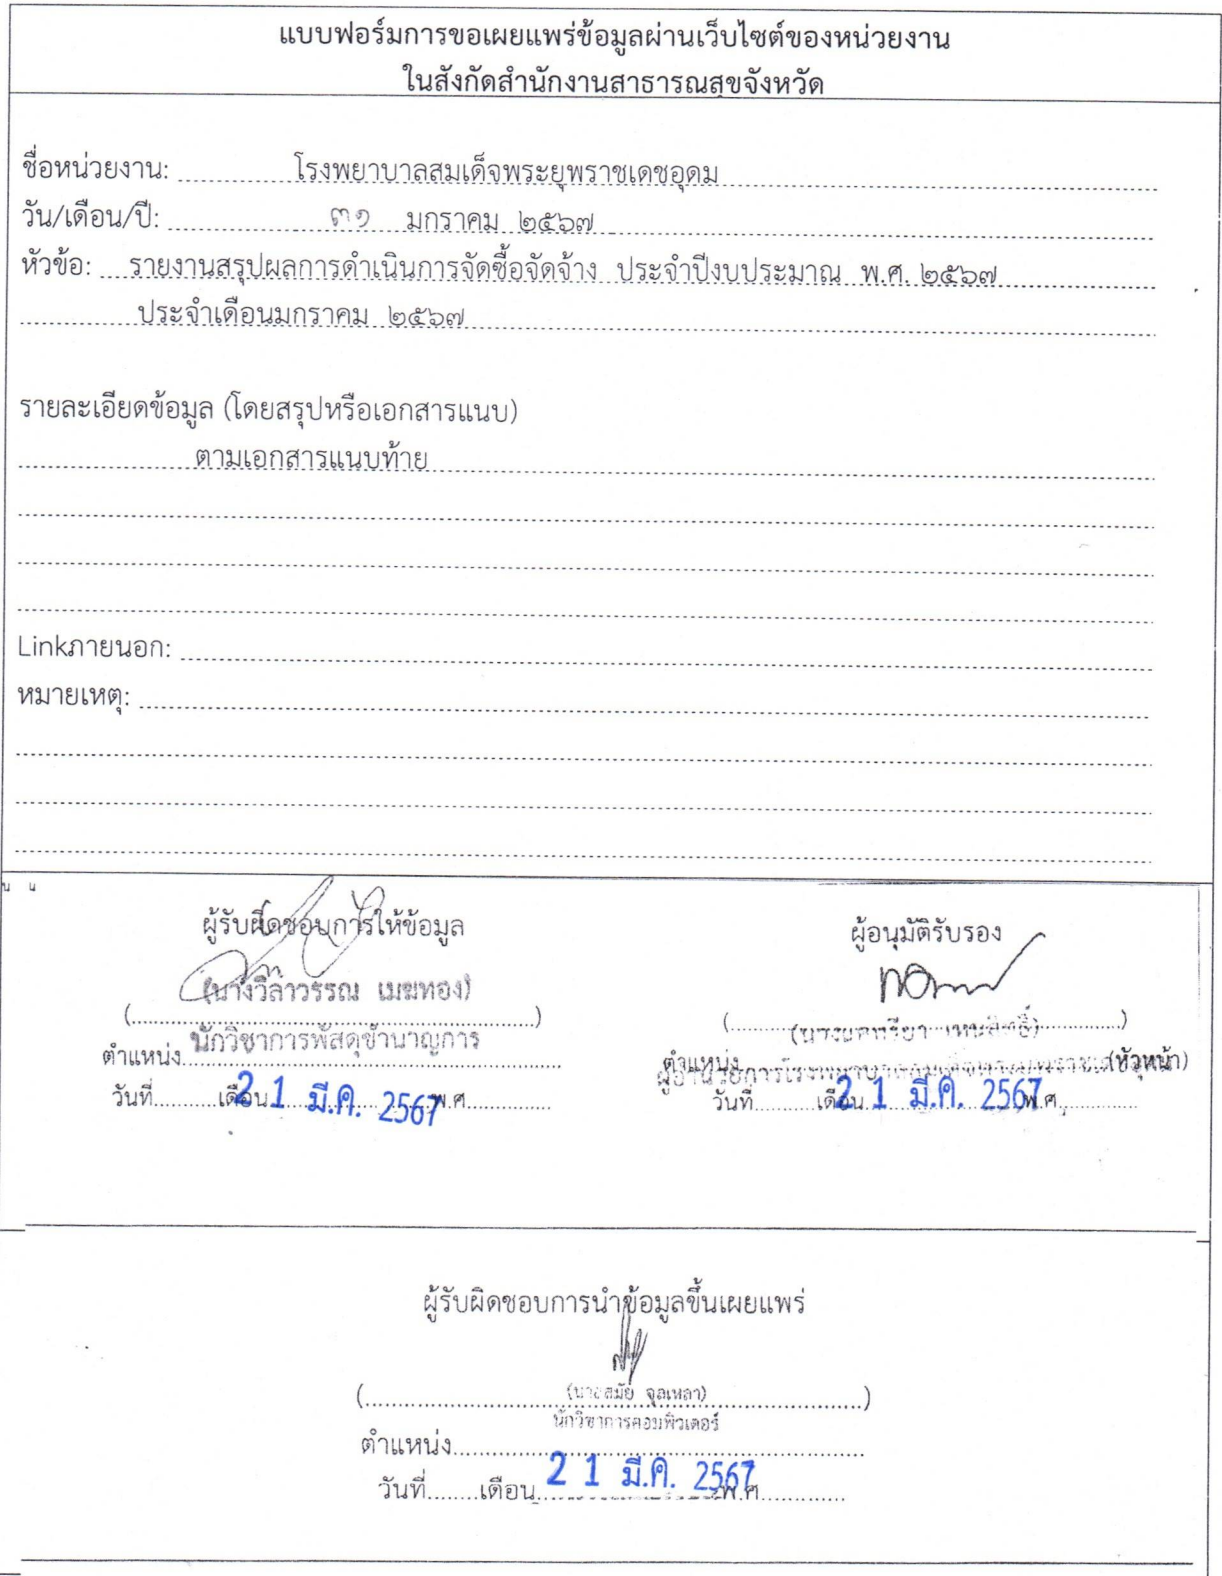 แบบฟอร์มการขอเผยแพร่ข้อมูลผ่านเว็บไซต์ของหน่วยงาน
ในสังกัดสำนักงานสาธารณสุขจังหวัด
ชื่อหน่วยงาน: โรงพยาบาลสมเด็จพระยุพราชเดชอุดม
วัน/เดือน/ปี: ๓๑ มกราคม ๒๕๖๗
หัวข้อ: รายงานสรุปผลการดำเนินการจัดซื้อจัดจ้าง ประจำปีงบประมาณ พ.ศ. ๒๕๖๗
ประจำเดือนมกราคม ๒๕๖๗
รายละเอียดข้อมูล (โดยสรุปหรือเอกสารแนบ)
ตามเอกสารแนบท้าย
Linkภายนอก:
หมายเหตุ:
ผู้รับผิดชอบการให้ข้อมูล
(นางวิลาวรรณ เมฆทอง)
(....................)
ตำแหน่ง นักวิชาการพัสดุชำนาญการ
วันที่ เดือน 21 มี.ค. 2567 พ.ศ.
ผู้อนุมัติรับรอง
(....................)
ตำแหน่ง (หัวหน้า)
วันที่ เดือน 21 มี.ค. 2567 พ.ศ.
ผู้รับผิดชอบการนำข้อมูลขึ้นเผยแพร่
(นายสมัย จูลเหลา)
(....................)
นักวิชาการคอมพิวเตอร์
ตำแหน่ง
วันที่ เดือน 21 มี.ค. 2567 พ.ศ.